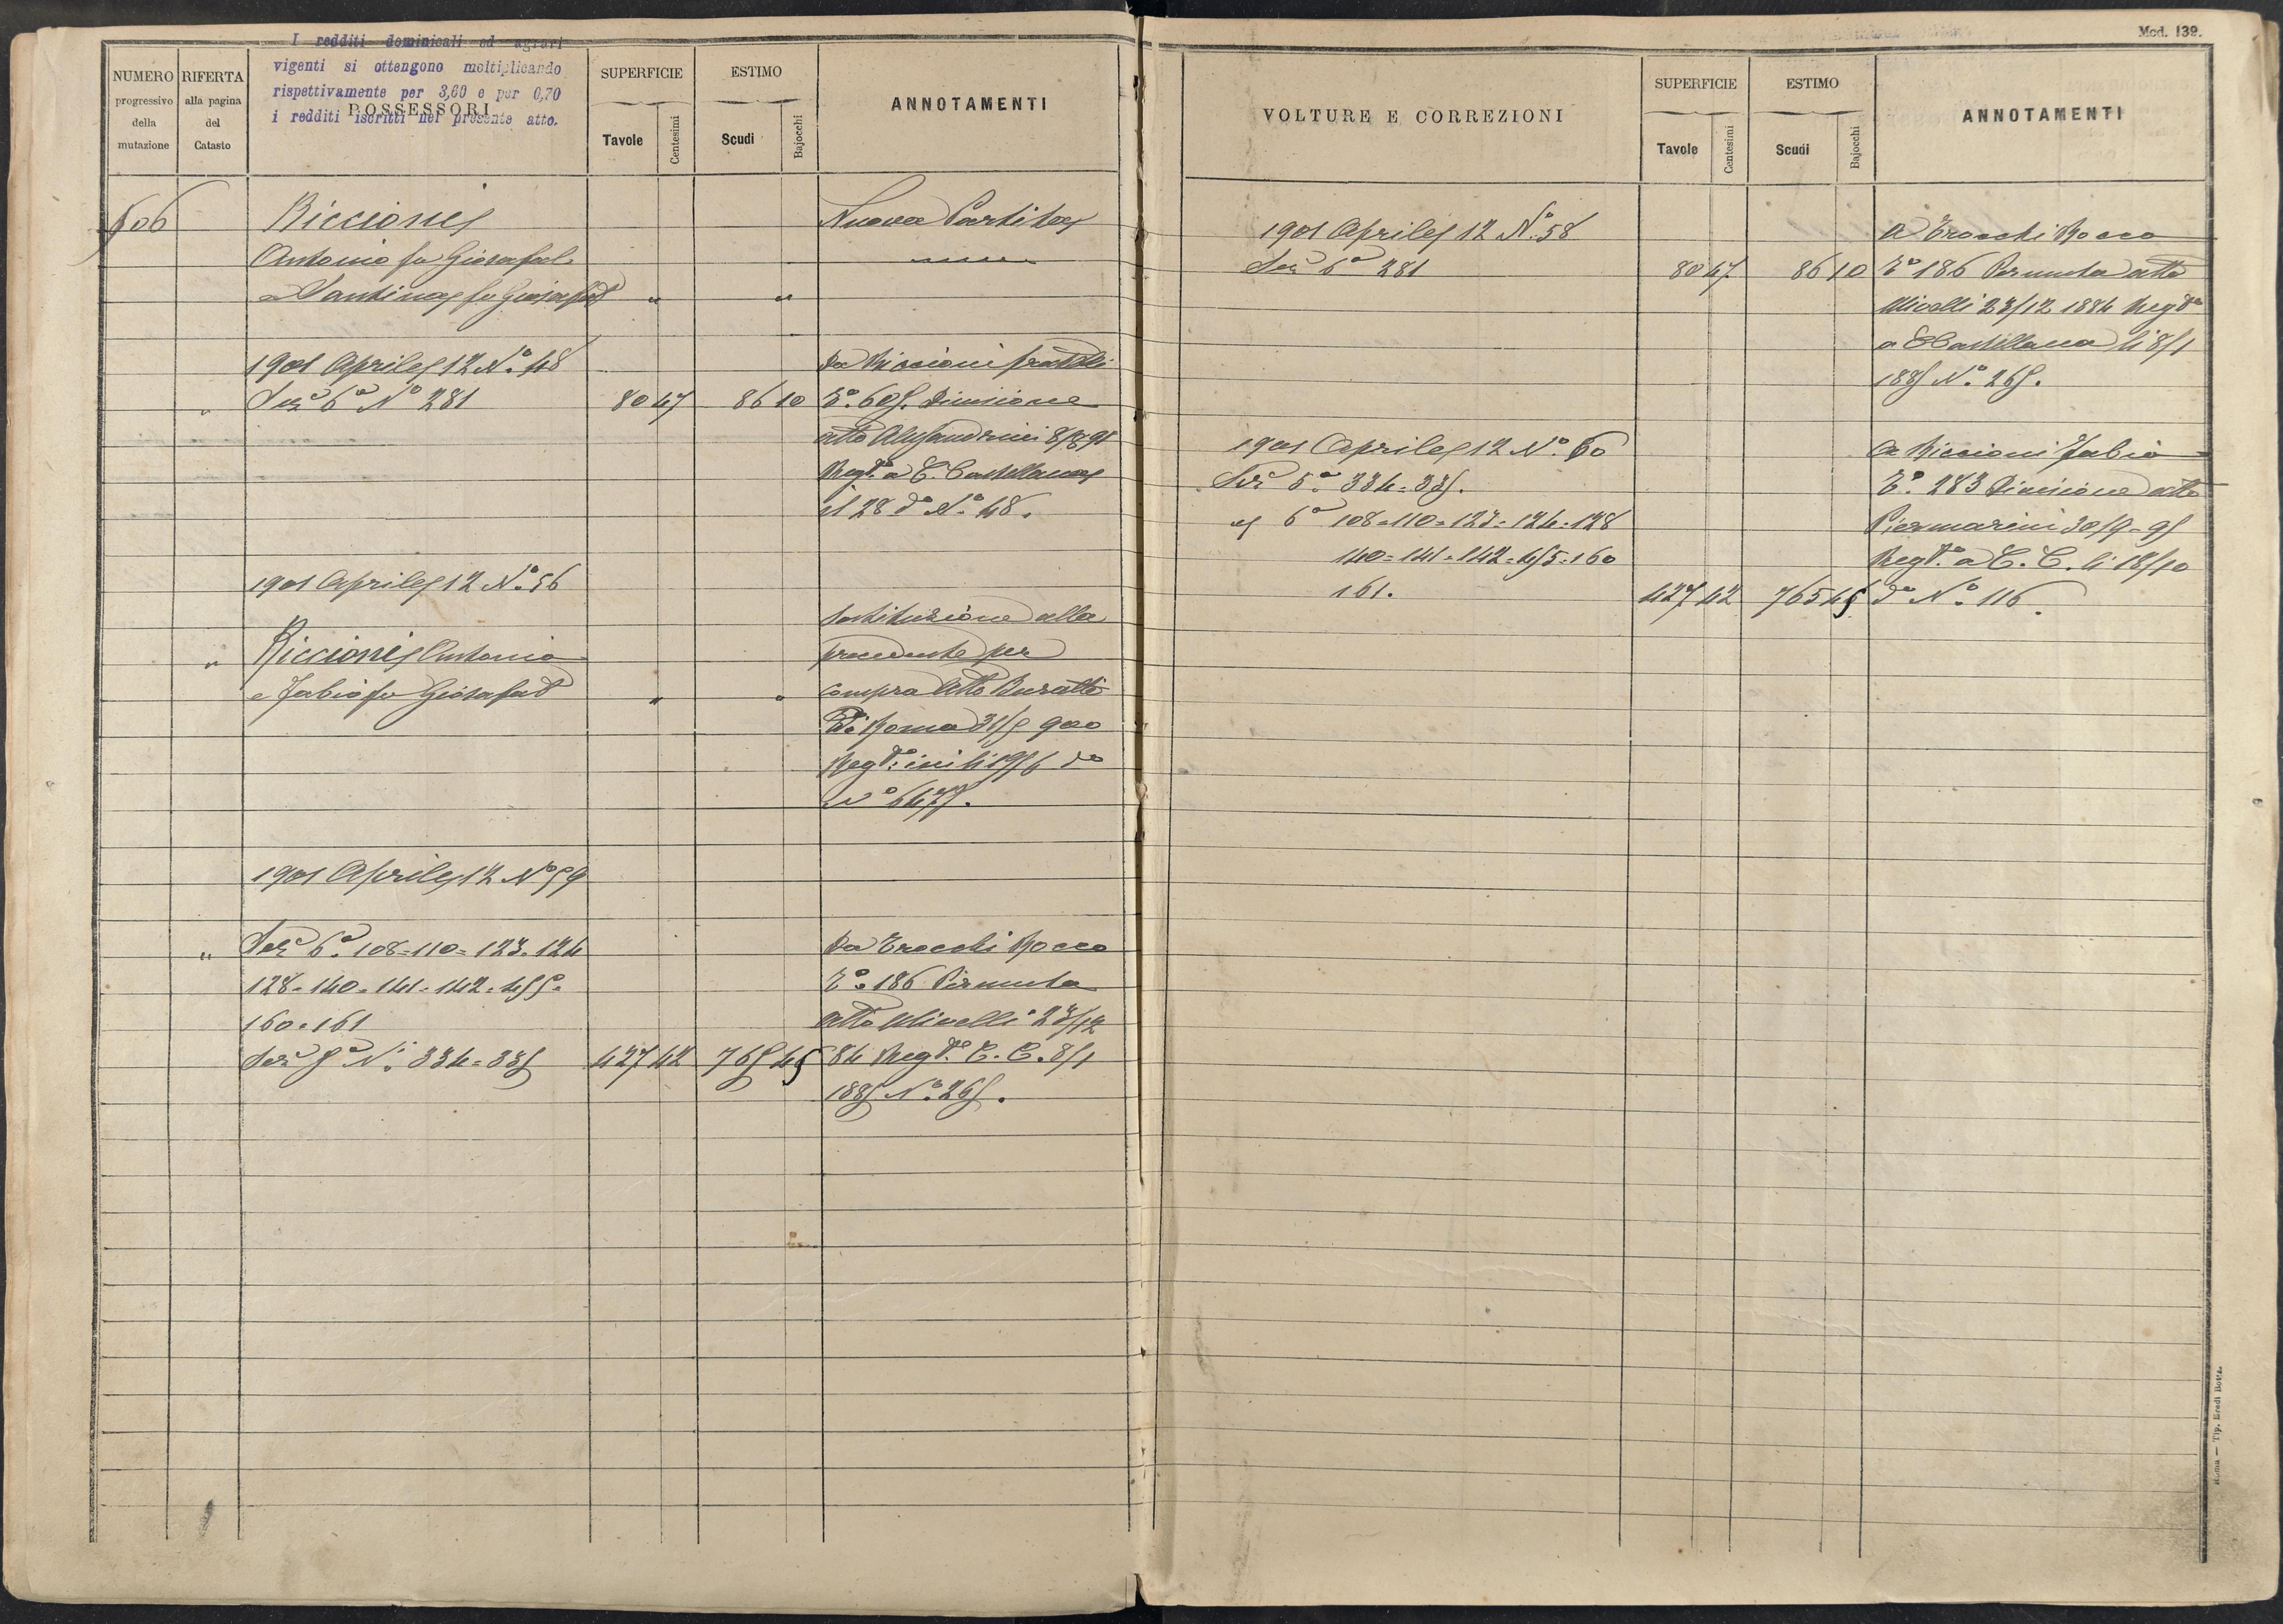 I redditi dominicali ed agrari
vigenti si ottengono moltiplicando
rispettivamente per 3,60 e per 0,70
i redditi iscritti nel presente atto.
NUMERO progressivo della mutazione
RIFERTA alla pagina del Catasto
POSSESSORI
SUPERFICIE
Tavole
Centesimi
ESTIMO
Scudi
Bajocchi
ANNOTAMENTI
606 Riccioni Nuova Partita
Antonio fu Giosafat
e Santina fu Giosafat " "
1901 Aprile 12 N.° 48 Da Riccioni fratelli
" Sez 6ª N° 281 80 47 86 10 C.° 605. Divisione
atto Alessandrini 8/8 91
Regto a C. Castellana
il 28 do N.° 48.
1901 Aprile 12 N.° 56
sostituzione alla
" Riccioni Antonio precedente per
e Fabio fu Giosafat " " compra Atto Buratti
di Roma 31/5 900
Regto: ivi li 19/6 do
N° 6475.
1901 Aprile 12 N° 59
" Sez 6ª 108=110=123=124 Da Crocchi Rocco
128=140=141=142=455= C.° 186 Permuta
160=161 atto Ulivelli 23/12
Sez 5ª N.° 334=335 427 42 765 45 84 Regto C. C. 8/1
1885 N.° 265.
Mod. 139.
VOLTURE E CORREZIONI
SUPERFICIE
Tavole
Centesimi
ESTIMO
Scudi
Bajocchi
ANNOTAMENTI
1901 Aprile 12 N.° 58 a Crocchi Rocco
Sez 6ª 281 80 47 86 10 C° 186 Permuta atto
Ulivelli 23/12 1884 Regto
a C Castellana li 8/1
1885 N.° 265.
1901 Aprile 12 N.° 60 a Riccioni Fabio
Sez 5ª 334=335. C.° 283 Divisione atto
e 6ª 108=110=123=124=128 Piermarini 30/9=95
140=141=142=455=160 Regto. a C. C. li 18/10
161. 427 42 765 45 do N.° 116.
Roma — Tip. Eredi Botta.